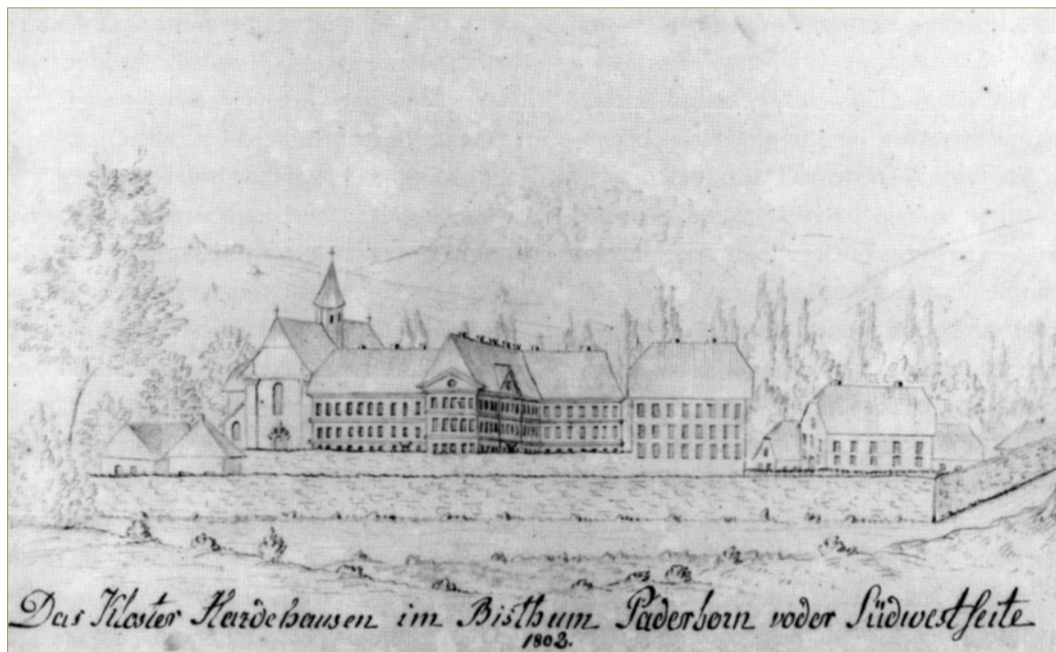 Das Kloster Hardehausen im Bisthum Paderborn voder Südwestseite
1802.